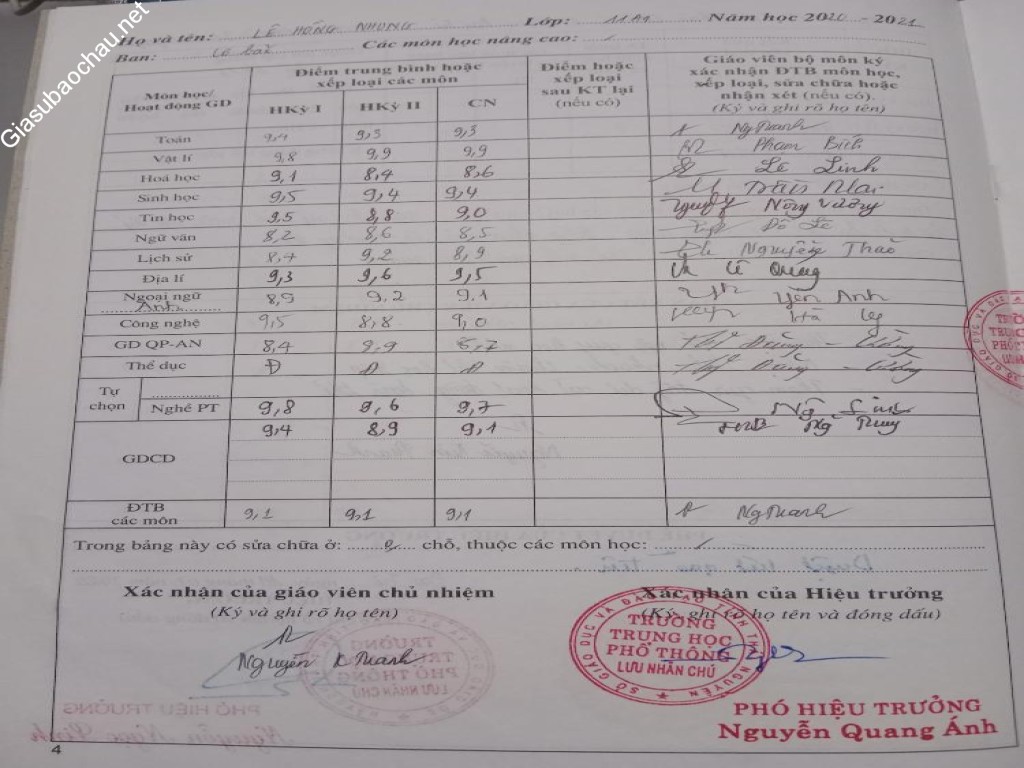 Giasubaochau.net
Họ và tên: LÊ HỒNG NHUNG Lớp: 11A1 Năm học 2020 - 2021
Ban: Cơ bản Các môn học nâng cao: /
Môn học/ Hoạt động GD
Điểm trung bình hoặc xếp loại các môn
HKỳ I HKỳ II CN
Điểm hoặc xếp loại sau KT lại (nếu có)
Giáo viên bộ môn ký xác nhận ĐTB môn học, xếp loại, sửa chữa hoặc nhận xét (nếu có).
(Ký và ghi rõ họ tên)
Toán 9,4 9,3 9,3
Vật lí 9,8 9,9 9,9 Phạm Bích
Hoá học 9,1 8,4 8,6 Lê Linh
Sinh học 9,5 9,4 9,4 Trần Mai
Tin học 9,5 8,8 9,0 Nông Vương
Ngữ văn 8,2 8,6 8,5 Đỗ Lê
Lịch sử 8,4 9,2 8,9 Nguyễn Thảo
Địa lí 9,3 9,6 9,5 Lê Quang
Ngoại ngữ Anh 8,9 9,2 9,1 Yến Anh
Công nghệ 9,5 8,8 9,0
GD QP-AN 8,4 9,9
Thể dục Đ Đ Đ
Tự chọn
Nghề PT 9,8 9,6 9,7
GDCD 9,4 8,9 9,1
ĐTB các môn 9,1 9,1 9,1
Trong bảng này có sửa chữa ở: 0 chỗ, thuộc các môn học: /
Xác nhận của giáo viên chủ nhiệm
(Ký và ghi rõ họ tên)
Nguyễn
Xác nhận của Hiệu trưởng
(Ký, ghi rõ họ tên và đóng dấu)
SỞ GIÁO DỤC VÀ ĐÀO TẠO TỈNH THÁI NGUYÊN
TRƯỜNG
TRUNG HỌC
PHỔ THÔNG
LƯU NHÂN CHÚ
PHÓ HIỆU TRƯỞNG
Nguyễn Quang Ánh
4